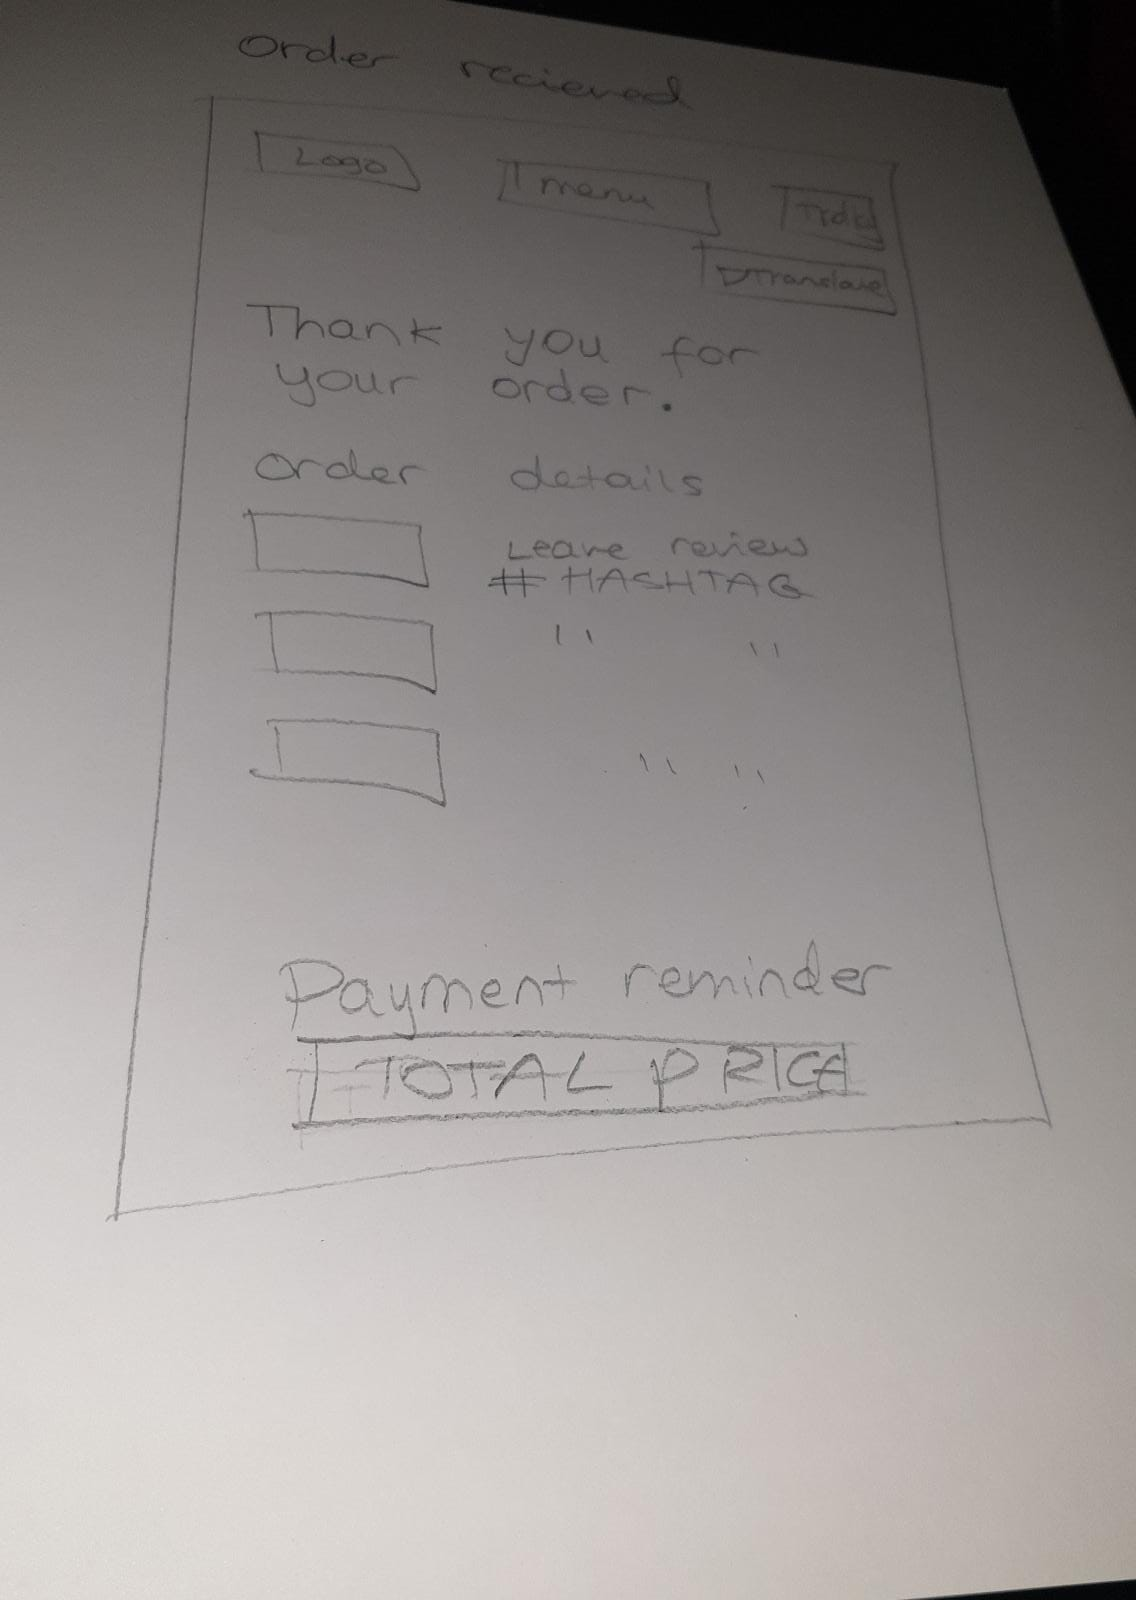 Order recieved
Logo
menu
Translate
Thank you for
your order.
Order details
Leave review
# HASHTAG
" "
" "
Payment reminder
TOTAL PRICE